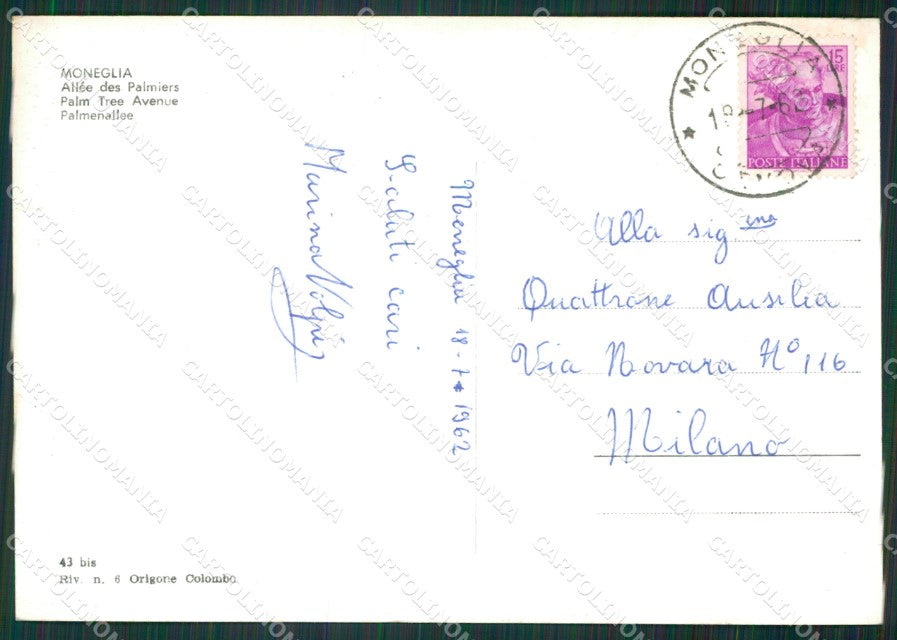 MONEGLIA
Allée des Palmiers
Palm Tree Avenue
Palmenallee
Meneglia 18-7-1962
Saluti cari
Marina Volpi
MONEGLIA
18-7-62
GENOVA
15
LIRE
POSTE ITALIANE
Alla sig.ina
Quattrone Ausilia
Via Novara N° 116
Milano
43 bis
Riv. n. 6 Origone Colombo
CARTOLINOMANIA